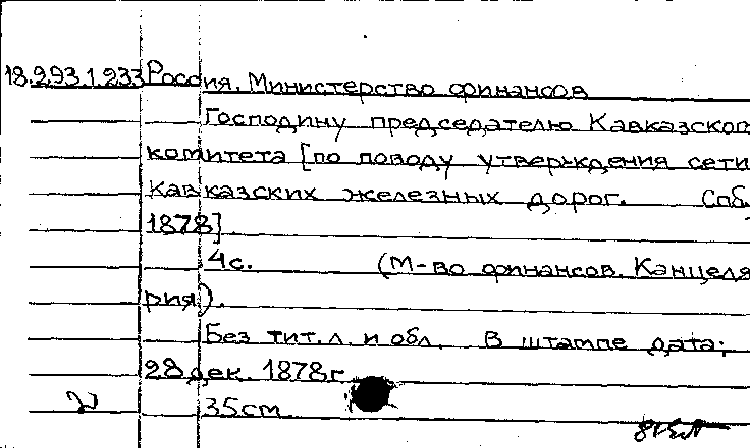 18.293.1.233 Россия. Министерство финансов
Господину председателю Кавказског
комитета [по поводу утверждения сети
Кавказских железных дорог. Спб.
1878]
4с. (М-во финансов. Канцеля
рия).
Без тит. л. и обл. В штампе дата:
28 дек. 1878г
35см